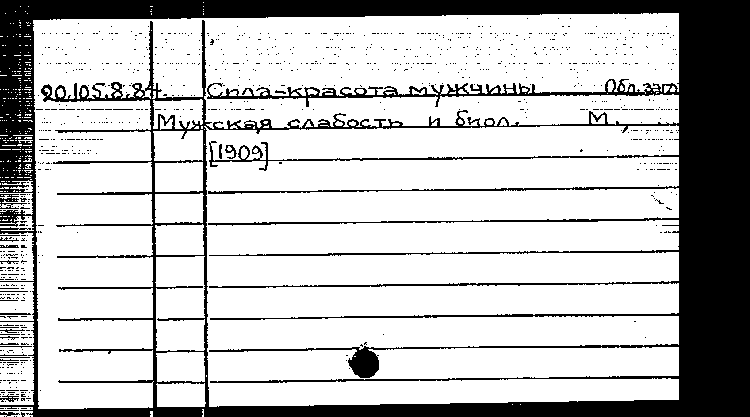 20.105.8.84. Сила-красота мужчины Обл.загл
Мужская слабость и биол. М.,
[1909].